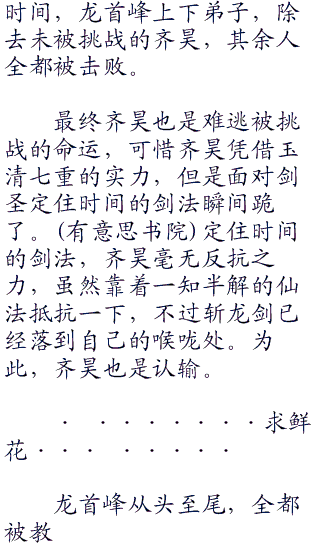 时间，龙首峰上下弟子，除
去未被挑战的齐昊，其余人
全都被击败。
最终齐昊也是难逃被挑
战的命运，可惜齐昊凭借玉
清七重的实力，但是面对剑
圣定住时间的剑法瞬间跪
了。(有意思书院)定住时间
的剑法，齐昊毫无反抗之
力，虽然靠着一知半解的仙
法抵抗一下，不过斩龙剑已
经落到自己的喉咙处。为
此，齐昊也是认输。
· ········求鲜
花··· ·····
龙首峰从头至尾，全都
被教